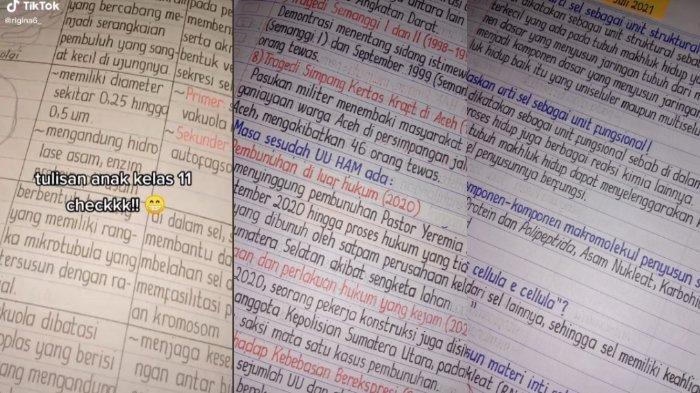 TikTok
@rigina6_
yang bercabang me-
njadi serangkaian
pembuluh yang sang-
at kecil di ujungnya
~memiliki diameter
sekitar 0,25 hingga
0,5 um
~mengandung hidro
lase asam, enzim
tulisan anak kelas 11
checkkk!! 😁
berbent
yang memiliki rang
ka mikrotubula yang
tersusun dengan ra-
kuola dibatasi
oplas yang berisi
ang mengandung
pada pe
memben
serta
bentuk
sekresi
~Primer
vakuola
~Sekunder
autofagso
di dalam sel,
membantu da
mbelahan sel
memfasilitasi p
an kromosom
~menjaga kese
ngan antar
Tragedi Semanggi I dan II (1998-199
Angkatan Darat.
Demontrasi menentang sidang istimew
(Semanggi I) dan September 1999 (Seman
orang tewas.
8) Tragedi Simpang Kertas Kraft di Aceh
Pasukan militer menembaki masyarakat
ganiayaan warga Aceh di persimpangan jal
Aceh, mengakibatkan 46 orang tewas.
Masa sesudah UU HAM ada :
Pembunuhan di luar hukum (2020)
menyinggung pembunuhan Pastor Yeremia
tember 2020 hingga proses hukum yang tid
yang dibunuh oleh satpam perusahaan
umatera Selatan akibat sengketa lahan.
an dan perlakuan hukum yang kejam (202
2020, seorang pekerja konstruksi juga disi
anggota Kepolisian Sumatera Utara, pada
saksi mata satu kasus pembunuhan.
hadap Kebebasan Berekspresi
sejumlah UU dan
Juli 2021
dikatakan sebagai unit struktural sebab
terkecil yang ada pada tubuh makhluk hidup
dasar yang menyusun jaringan tubuh dari m
menjadi komponen dasar yang menyusun jaringan
uk hidup baik itu yang uniseluler maupun multisel
askan arti sel sebagai unit fungsional!
dikatakan sebagai unit fungsional sebab di dalam
oses hidup juga berbagai reaksi kimia lainnya
tubuh makhluk hidup dapat menyelenggarakan
el penyusunnya berfungsi.
omponen-komponen makromolekul penyusun s
rotein dan Polipeptida, Asam Nukleat, Karbohi
cellula e cellula"?
dari sel lainnya, sehingga sel memiliki keahlia
sun materi inti